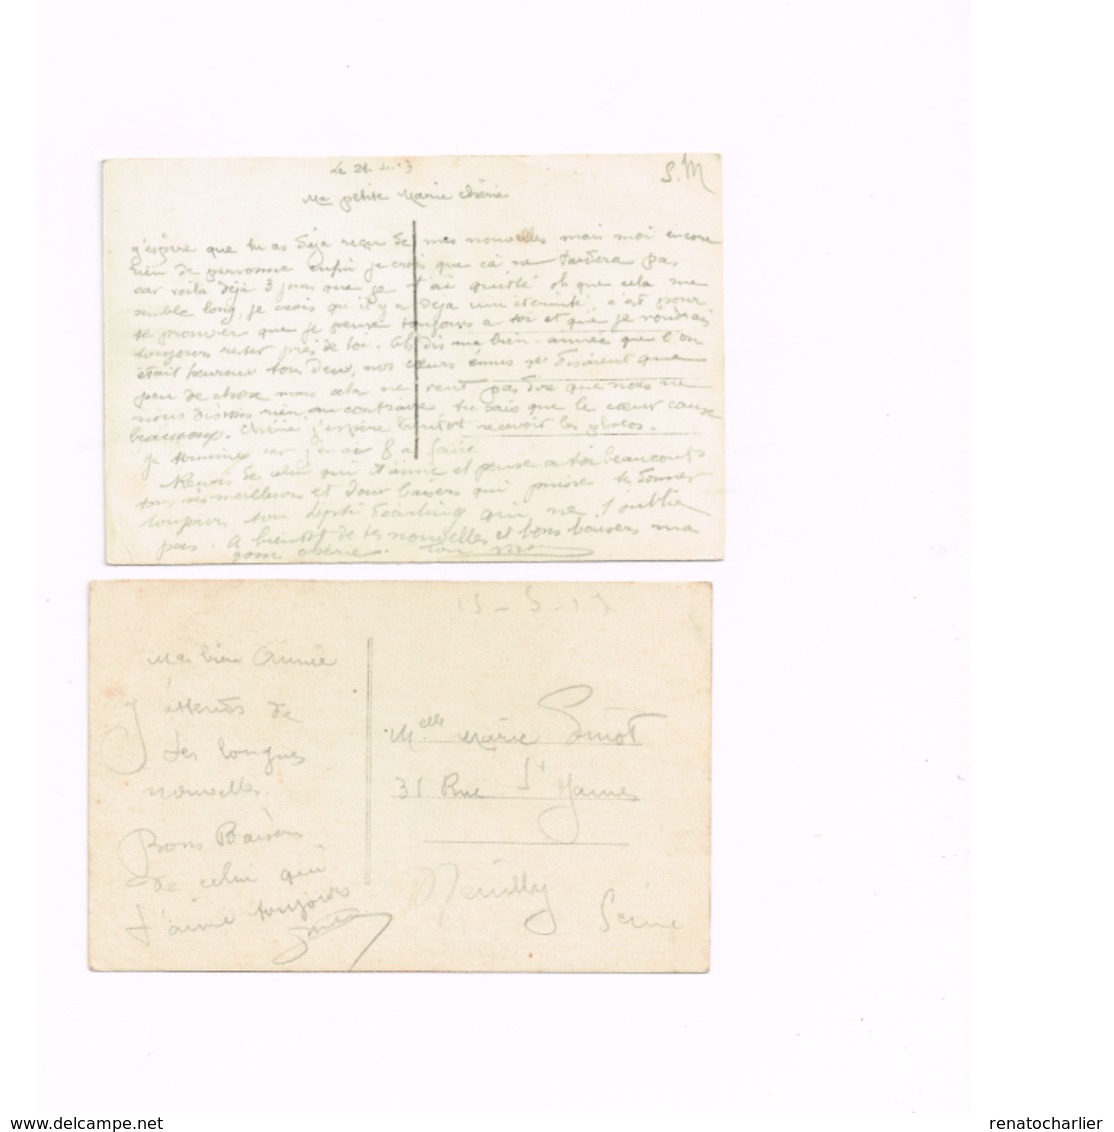 S.M
Le 21.
Ma petite Marie chérie
j'espère que tu as déja reçu de mes nouvelles mais moi encore
rien de personne enfin je crois que cà ne tardera pas
car voilà déjà 3 jours que je t'ai quitté oh que cela me
semble long, je crois qu'il y a déja une éternité, c'est pour
te prouver que je pense toujours a toi et que je voudrais
toujours rester près de toi. dis ma bien-aimée que l'on
était heureux tous deux, nos cœurs émus se disaient que
peu de chose mais cela ne veut pas dire que nous ne
nous disions rien, au contraire tu sais que le cœur cause
beaucoup. Chérie j'espère bientôt recevoir les photos.
Je termine car j'en ai 8 a faire
Reçois de celui qui t'aime et pense a toi beaucoup
tous ses meilleurs et doux baisers qui puisse te donner
toujours ton qui ne t'oublie
pas. A bientôt de tes nouvelles et bons baisers ma
chérie. ton
15-5-
Ma bien Aimée
J'attends de
tes longues
nouvelles.
Bons Baisers
de celui qui
t'aime toujours
Melle Marie
31 Rue St James
Neuilly
Seine
renatocharlier
www.delcampe.net